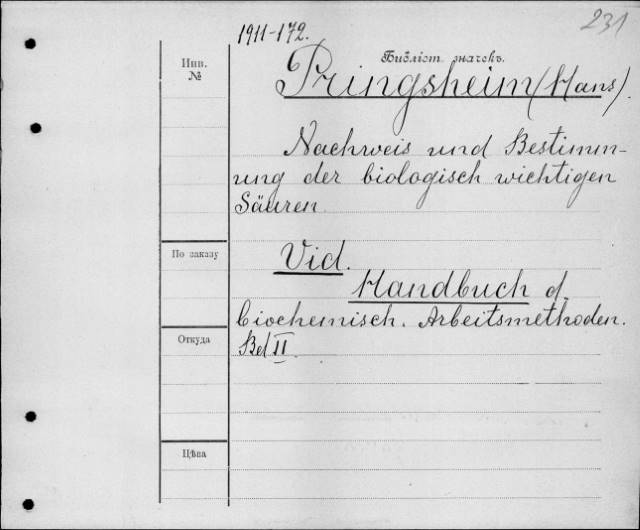 231
1911-172.
Инв.
№
Библіот. значекъ.
Pringsheim (Hans).
Nachweis und Bestimm-
ung der biologisch wichtigen
Säuren.
По заказу
Vid.
Handbuch d.
biochemisch. Arbeitsmethoden.
Откуда
Bd II.
Цѣна